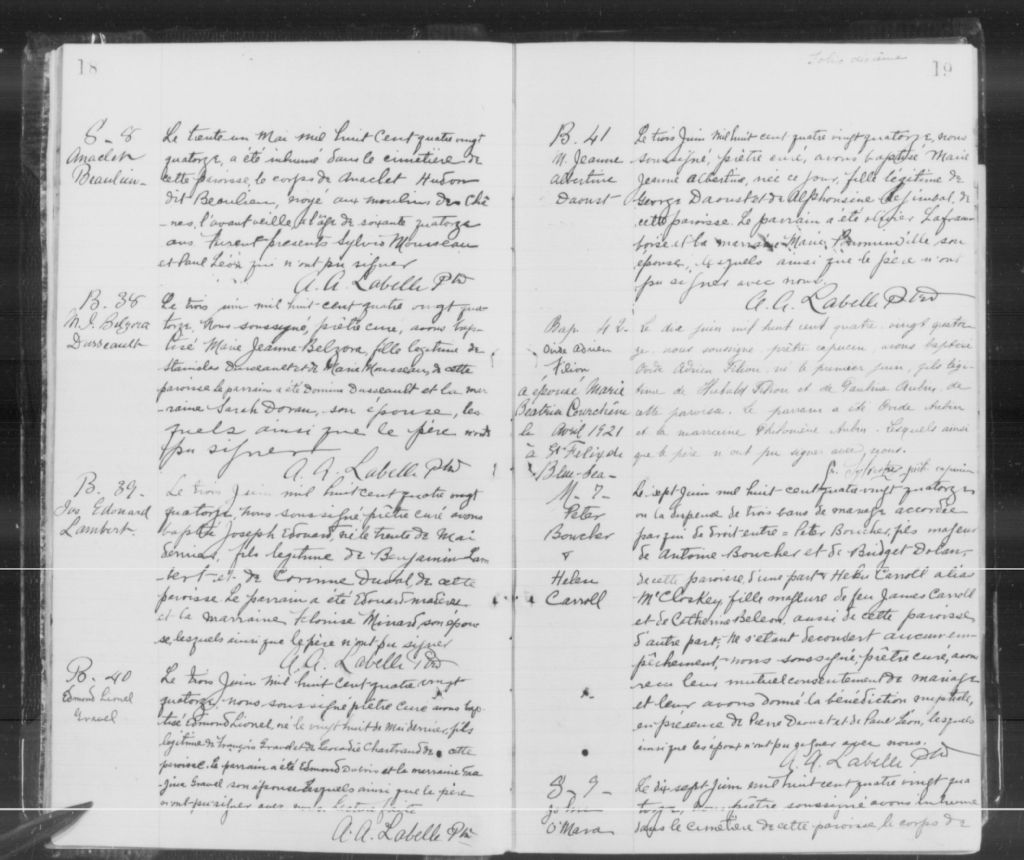 18
S - 8
Anaclet
Beaulieu
Le trente un Mai mil huit cent quatre vingt
quatorze, a été inhumé dans le cimetière de
cette paroisse, le corps de Anaclet Hudon
dit Beaulieu, noyé aux moulins des Chê
-nes, l'avant veille, à l'âge de soixante quatorze
ans furent presents Sylvis Mousseau
et Paul Léon qui n'ont pu signer
A. A. Labelle Ptre
B. 38
M. J. Belzora
Dusseault
Le trois juin mil huit-cent quatre vingt qua
torze. Nous soussigné, prêtre curé, avons bap-
tisé Marie Jeanne Belzora, fille legitime de
Stanislas Dusseault et de Marie Mousseau, de cette
paroisse le parrain a été Dusseault et la mar-
raine Sarah Doran, son épouse, les
quels ainsi que le père n'ont
pu signer
A. A. Labelle Ptre
B. 39 -
Jos Edouard
Lambert.
Le trois Juin mil huit cent quatre vingt
quatorze, nous sous signé prêtre curé avons
baptisé Joseph Edouard, né le trente de Mai
dernier, fils legitime de Benjamin Lam
bert et de Corinne Duval de cette
paroisse. Le parrain a été Edouard
et la marraine Minard, son épou
se, lesquels ainsi que le père n'ont pu signer
A. A. Labelle Ptre
B. 40
Edmond Lionel
Gravel
Le trois Juin mil huit cent quatre vingt
quatorze, nous sous signé prêtre curé avons bap
tisé Edmond Lionel, né le vingt huit de Mai dernier, fils
legitime de François Gravel et de Leocadie Chartrand de cette
paroisse. Le parrain a été Edmond et la marraine
Gravel son épouse lesquels ainsi que le père
n'ont pu signer avec
A. A. Labelle Ptre
Folio dixième
19
B. 41
M. Jeanne
Albertine
Daoust
Le trois Juin mil huit cent quatre vingt quatorze, nous
soussigné, prêtre curé, avons baptisé Marie
Jeanne Albertine, née ce jour, fille légitime de
George Daoust et de Alphonsine de
cette paroisse. Le parrain a été Lafram
boise et la marraine Marie son
épouse, lesquels ainsi que le père n'ont
pu signer avec nous.
A. A. Labelle Ptre
Bap. 42 -
Ovide Adrien
Filion
a épousé Marie
Béatrice Courchène
le Avril 1921
à St Félix de
Blue-Sea
Le dix juin mil huit cent quatre vingt quator
ze, nous soussigné prêtre capucin, avons baptisé
Ovide Adrien Filion né le premier juin, fils légi
time de Filion et de Aubin, de
cette paroisse. Le parrain a été Ovide Aubin
et la marraine Philomène Aubin. Lesquels ainsi
que le père n'ont pu signer avec nous.
fr. prêt. capucin
M - 7 -
Peter
Boucher
&
Helen
Carroll
Le sept Juin mil huit cent quatre vingt quatorze,
vu la dispense de trois bans de mariage accordée
par qui de droit entre Peter Boucher, fils majeur
de Antoine Boucher et de Bridget Dolan,
de cette paroisse, d'une part & Helen Carroll alias
McCloskey, fille majeure de feu James Carroll
et de Catherine aussi de cette paroisse
d'autre part; Ne s'étant découvert aucun em-
pêchement, nous soussigné, prêtre curé, avons
recu leur mutuel consentement de mariage
et leur avons donné la bénédiction nuptiale,
en présence de Pierre Daoust et de Paul Léon, lesquels
ainsi que les époux n'ont pu signer avec nous.
A. A. Labelle Ptre
S - 9
John
O'Mara
Le dix sept Juin mil huit cent quatre vingt qua
torze, nous prêtre soussigné avons inhumé
dans le cimetière de cette paroisse le corps de